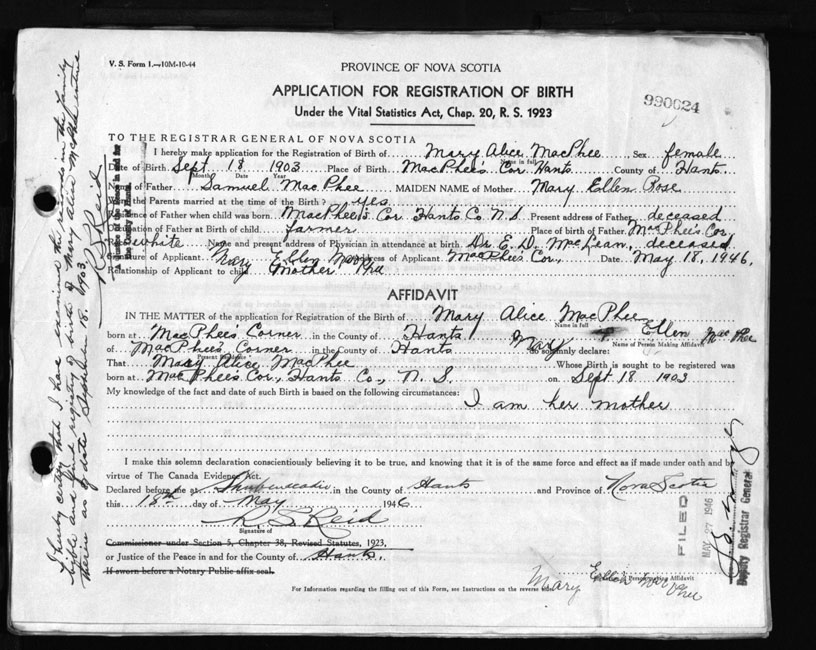 V. S. Form 1.—10M-10-44
PROVINCE OF NOVA SCOTIA
APPLICATION FOR REGISTRATION OF BIRTH
Under the Vital Statistics Act, Chap. 20, R. S. 1923
990024
TO THE REGISTRAR GENERAL OF NOVA SCOTIA
I hereby make application for the Registration of Birth of Mary Alice MacPhee Sex female
Name in full
Date of Birth Sept 18 1903 Place of Birth MacPhee's Cor Hants County of Hants
Month Date Year
Name of Father Samuel MacPhee MAIDEN NAME of Mother Mary Ellen Rose
Were the Parents married at the time of Birth? yes
Residence of Father when child was born MacPhee's Cor. Hants Co N.S. Present address of Father deceased
Occupation of Father at Birth of child farmer Place of birth of Father MacPhee's Cor,
Race white Name and present address of Physician in attendance at birth Dr. E. D. McLean, deceased
Signature of Applicant Mary Ellen MacPhee Address of Applicant MacPhee's Cor., Date May 18, 1946.
Relationship of Applicant to child Mother
AFFIDAVIT
IN THE MATTER of the application for Registration of the Birth of Mary Alice MacPhee
Name in full
born at MacPhee's Corner in the County of Hants Mary Ellen MacPhee
Name of Person Making Affidavit
of MacPhee's Corner in the County of Hants do solemnly declare:
That Mary Alice MacPhee Whose Birth is sought to be registered was
born at MacPhee's Cor., Hants Co., N. S. on Sept 18 1903
My knowledge of the fact and date of such Birth is based on the following circumstances:
I am her mother
I make this solemn declaration conscientiously believing it to be true, and knowing that it is of the same force and effect as if made under oath and by
virtue of The Canada Evidence Act.
Declared before me at Shubenacadie in the County of Hants and Province of Nova Scotia
this 18th day of May 1946
R S Reid
Signature of
Commissioner under Section 5, Chapter 38, Revised Statutes, 1923,
or Justice of the Peace in and for the County of Hants.
If sworn before a Notary Public affix seal.
Mary Ellen MacPhee
Person making Affidavit
For Information regarding the filling out of this Form, see Instructions on the reverse side.
I hereby certify that I have examined the record in the family
bible and find registry of birth of Mary Alice McPhee entered
therein as of date September 18. 1903.
R S Reid
A Justice of the Peace in and for
the County of Hants.
FILED
MAY 27 1946
Deputy Registrar General